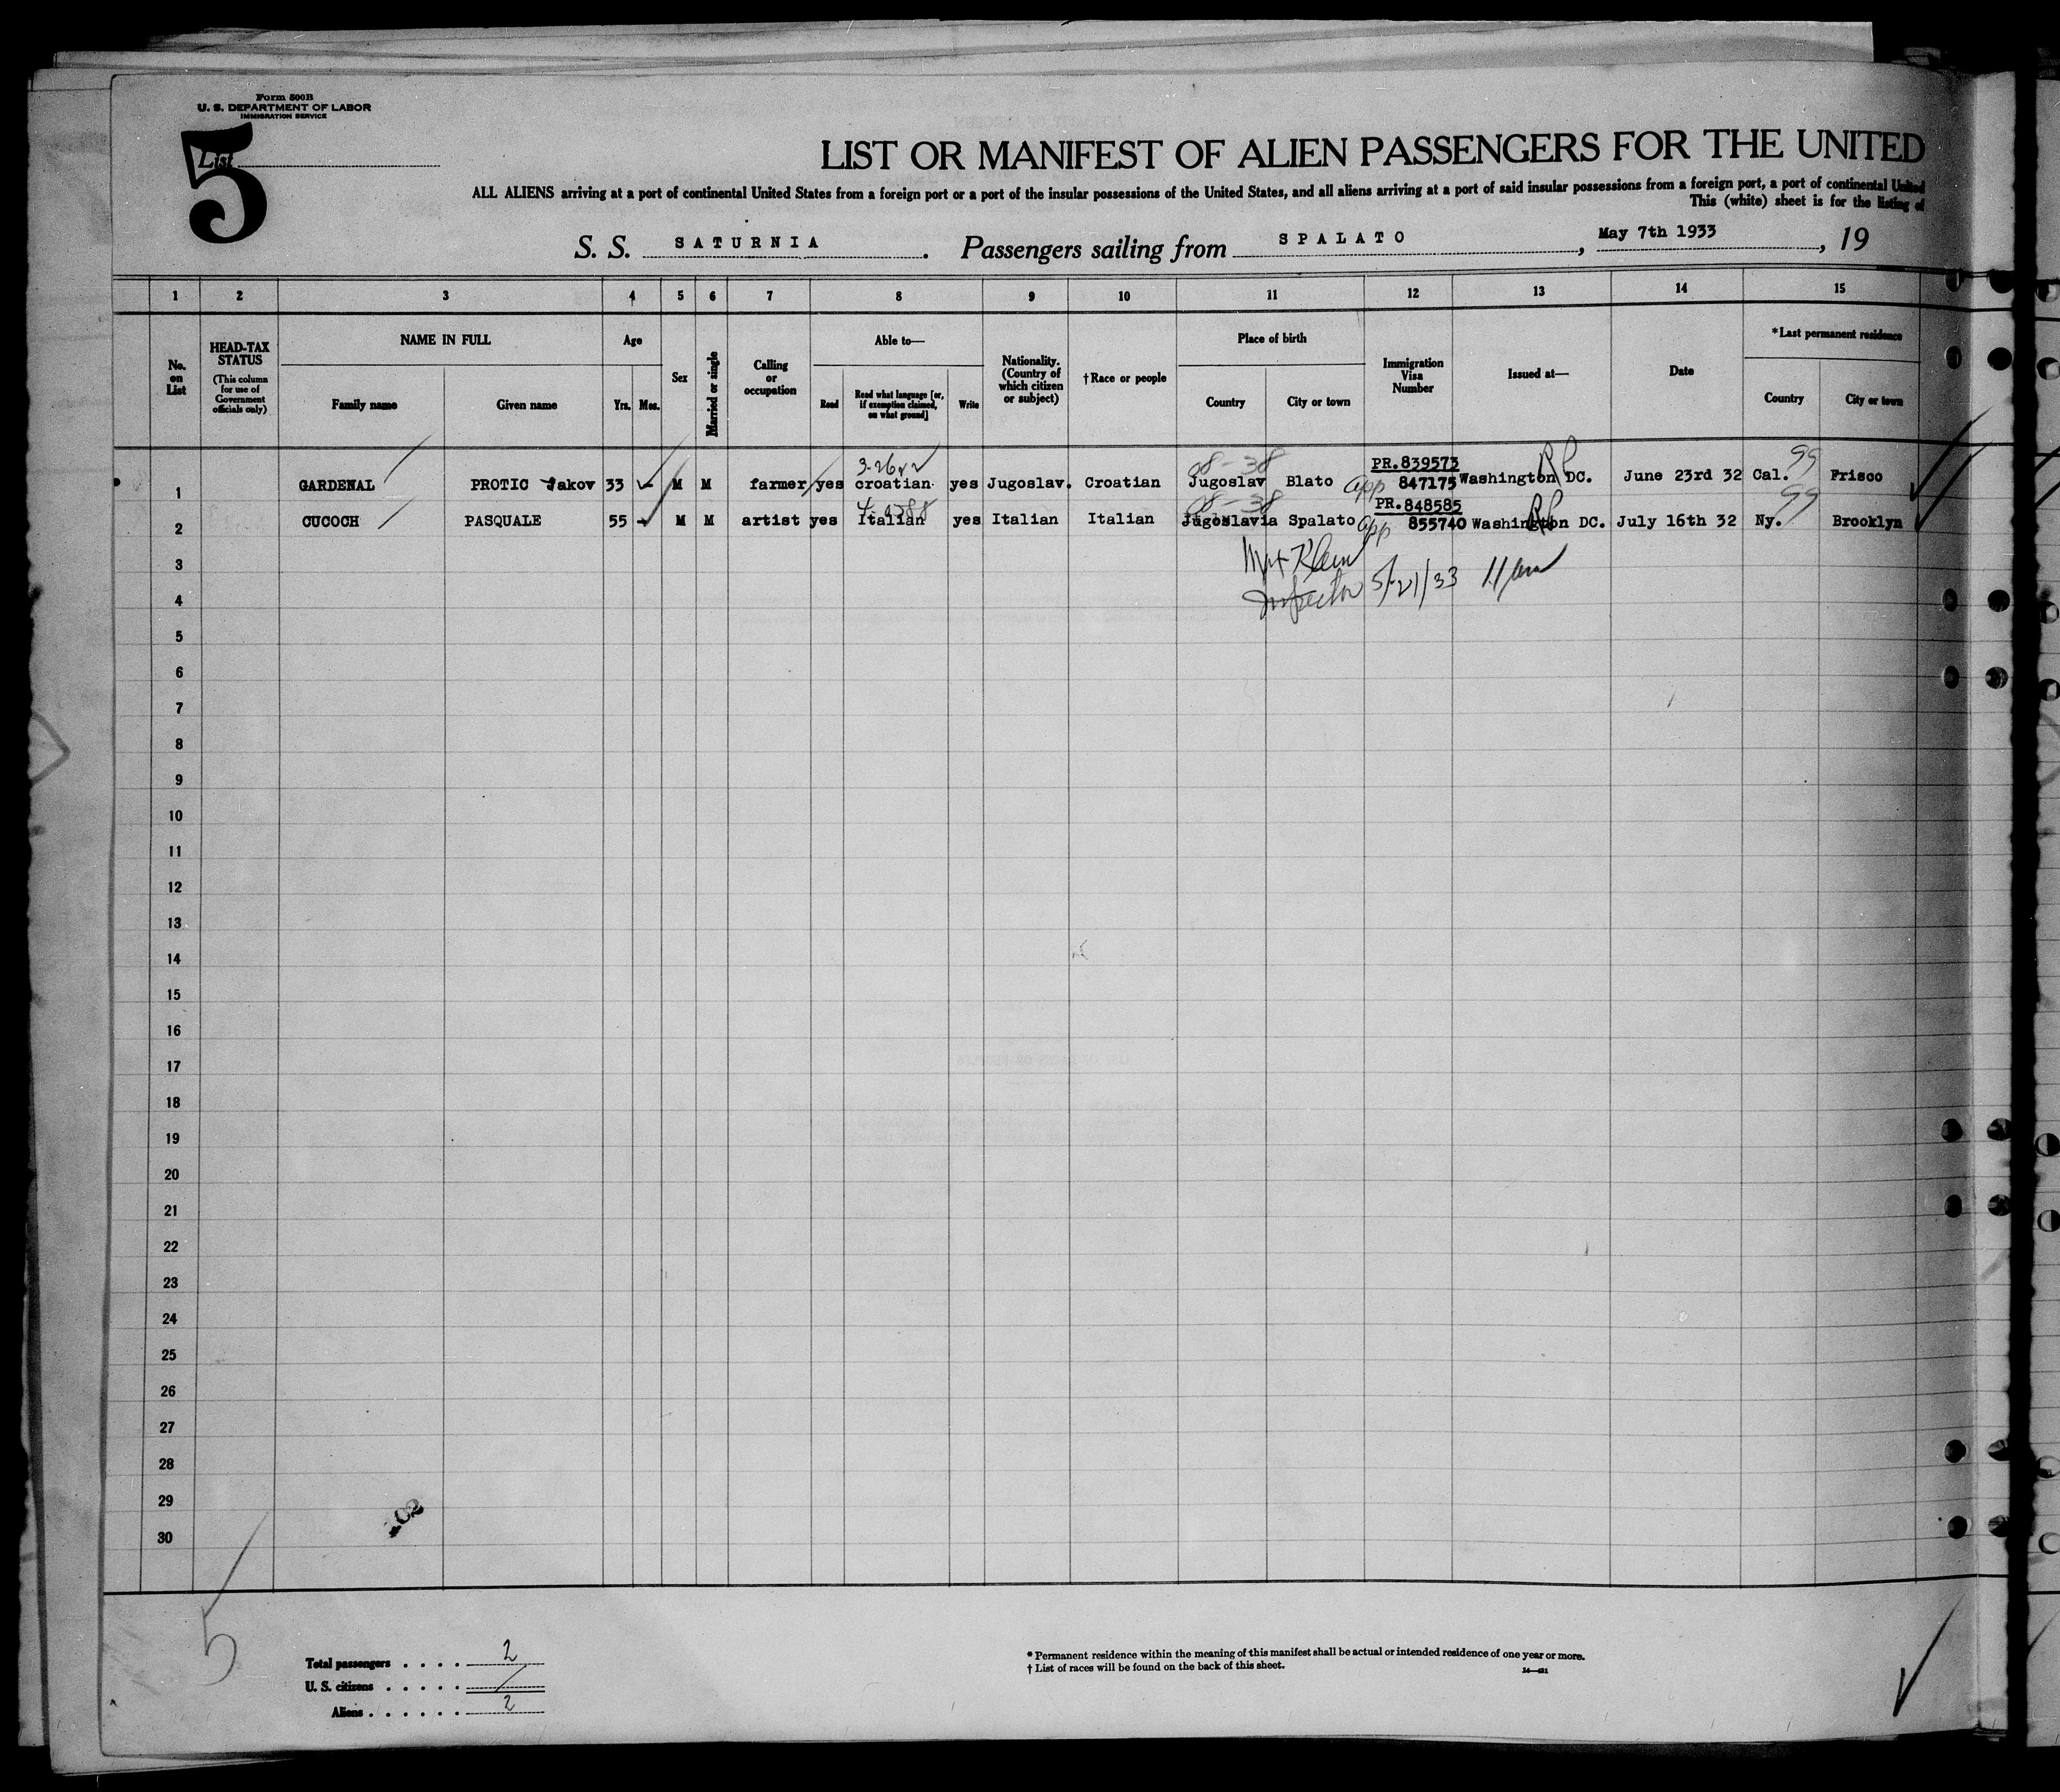 Form 500B
U. S. DEPARTMENT OF LABOR
IMMIGRATION SERVICE
5
List
LIST OR MANIFEST OF ALIEN PASSENGERS FOR THE UNITED
ALL ALIENS arriving at a port of continental United States from a foreign port or a port of the insular possessions of the United States, and all aliens arriving at a port of said insular possessions from a foreign port, a port of continental United
This (white) sheet is for the listing of
S. S. SATURNIA. Passengers sailing from SPALATO, May 7th 1933, 19
1 2 3 4 5 6 7 8 9 10 11 12 13 14 15
No. on List
HEAD-TAX STATUS (This column for use of Government officials only)
NAME IN FULL
Family name
Given name
Age
Yrs. Mos.
Sex
Married or single
Calling or occupation
Able to—
Read
Read what language [or, if exemption claimed, on what ground]
Write
Nationality. (Country of which citizen or subject)
†Race or people
Place of birth
Country
City or town
Immigration Visa Number
Issued at—
Date
*Last permanent residence
Country
City or town
08-38 PR.839573 99
1 GARDENAL PROTIC Jakov 33 M M farmer yes croatian yes Jugoslav. Croatian Jugoslav Blato app 847175 Washington DC. June 23rd 32 Cal. Frisco
08-38 PR.848585 99
2 CUCOCH PASQUALE 55 M M artist yes Italian yes Italian Italian Jugoslavia Spalato app 855740 Washington DC. July 16th 32 Ny. Brooklyn
3 Klein
4 Inspector 5/21/33 11 am
5
6
7
8
9
10
11
12
13
14
15
16
17
18
19
20
21
22
23
24
25
26
27
28
29
30
5
Total passengers . . . . 2
U. S. citizens . . . . . /
Aliens . . . . . . 2
* Permanent residence within the meaning of this manifest shall be actual or intended residence of one year or more.
† List of races will be found on the back of this sheet.